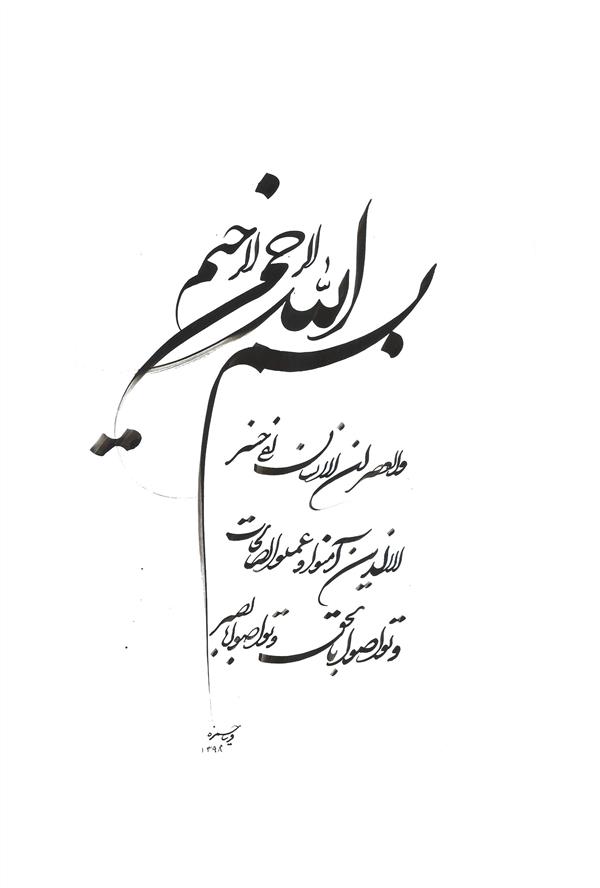 بسم الله الرحمن الرحیم
والعصر ان الانسان لفی خسر
الا الذین آمنوا و عملوا الصالحات
و تواصوا بالحق و تواصوا بالصبر
۱۳۹۸